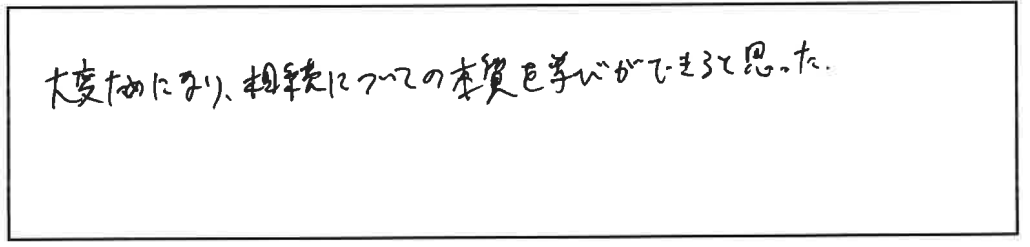 大変ためになり、相続についての本質を学びができると思った.